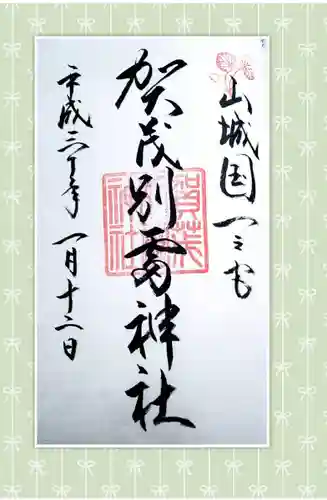 山城国一之宮
賀茂別雷神社
平成三十年一月十二日
賀茂
神社